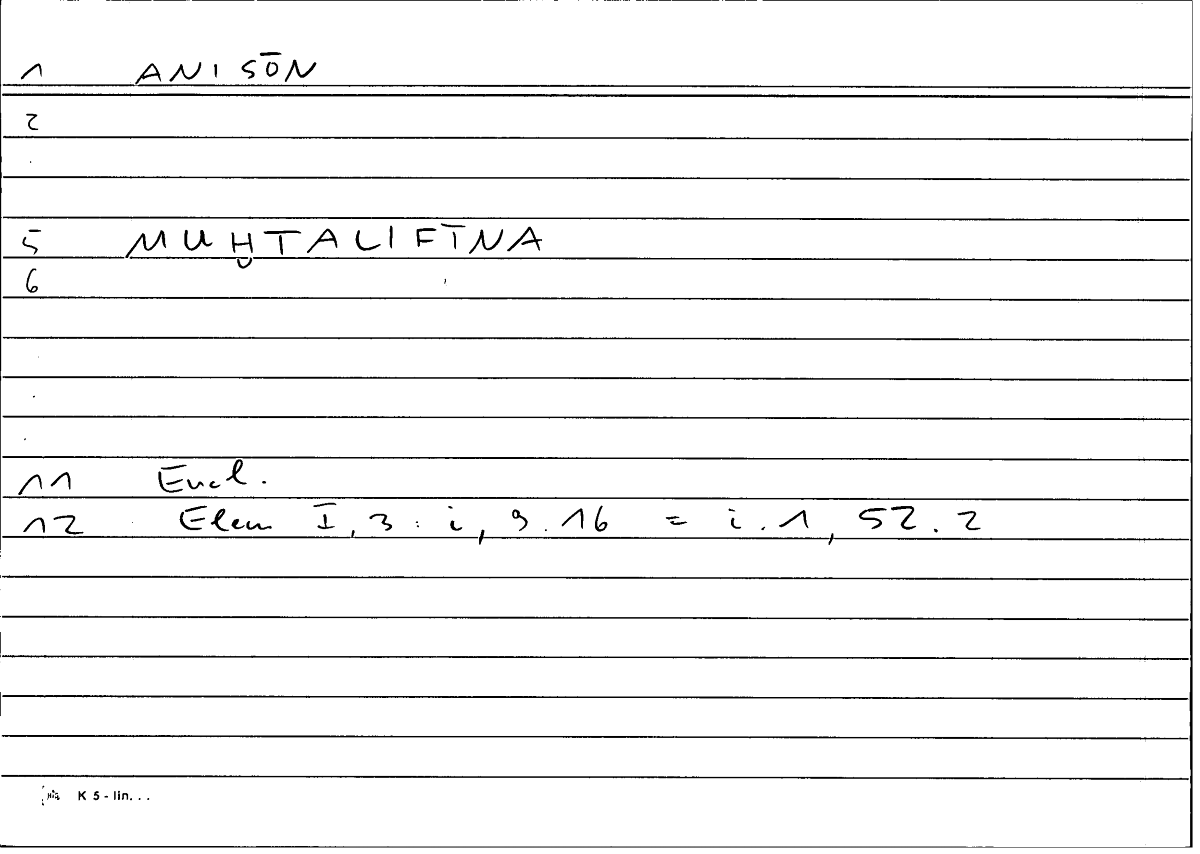 1 ANISŌN
2
5 MUḪTALIFĪNA
6
11 Eucl.
12 Elem I, 3 : i, 9.16 = i.1, 52.2
K 5 - lin. . .